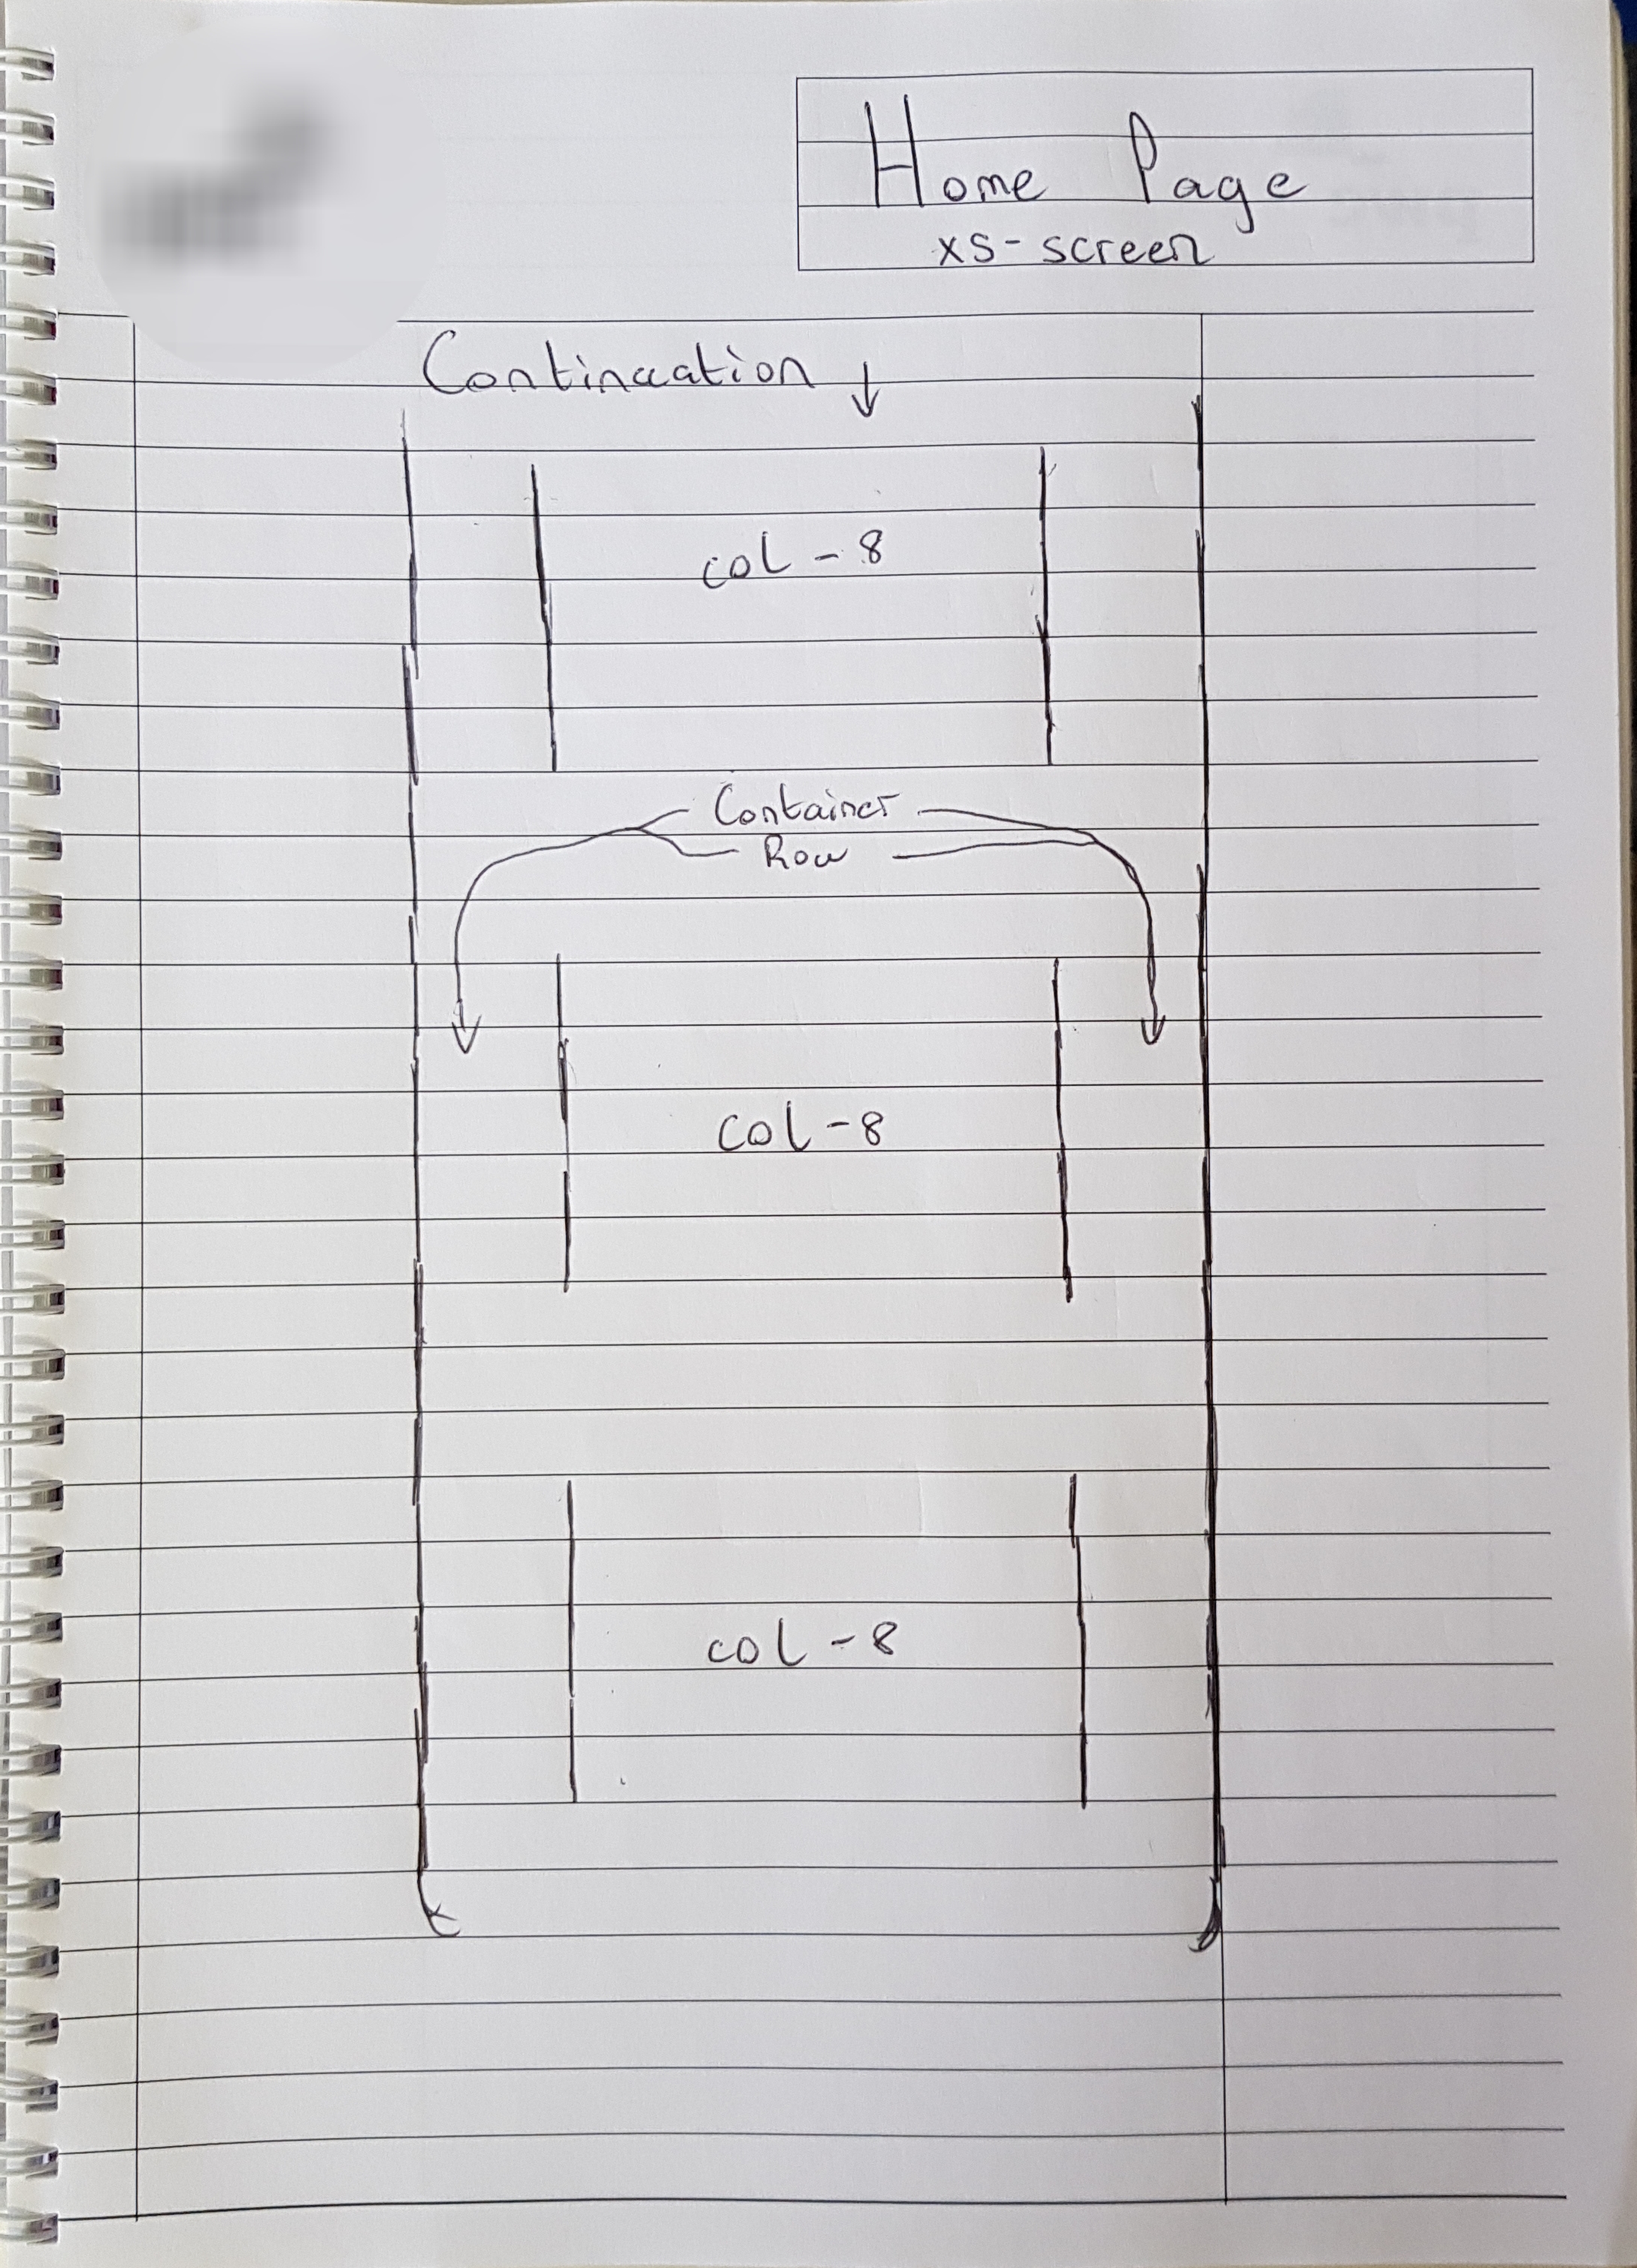 Home Page
xs-screen
Continuation ↓
col - 8
Container
Row
col - 8
col - 8